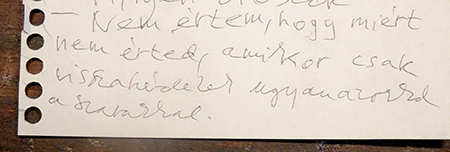 — Nem értem, hogy miért
nem érted, amikor csak
visszakérdezek ugyanazokkal
a szavakkal.